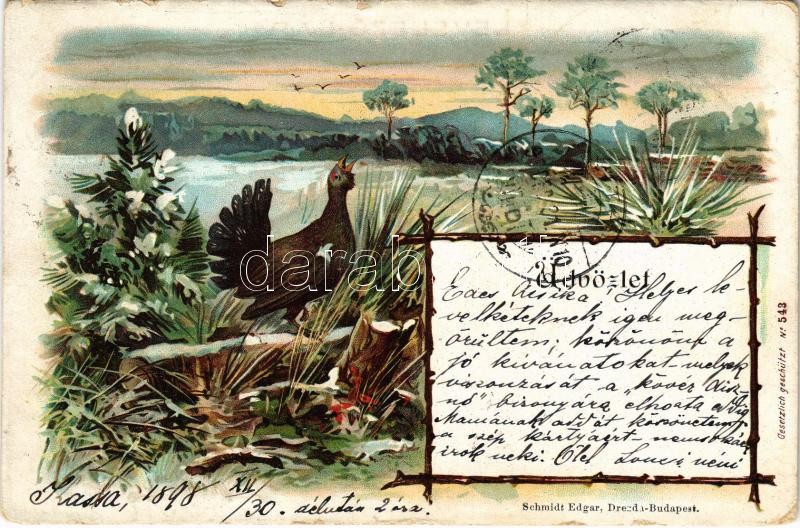 Üdvözlet
Édes Aliska! Helyes le-
velkéteknek igen meg-
örültem; köszönöm a
jó kivánatokat melyek
viszonzását a „kövér
nő” bizonyára elhozta addig
Mamának addát köszönetem
a szép kártyáért - nemsokára
irok neki. Ölel néni
Kassa, 1898 XII/30. délután 2 óra.
Schmidt Edgar, Drezda-Budapest.
Gesetzlich geschützt No 543
darabanth